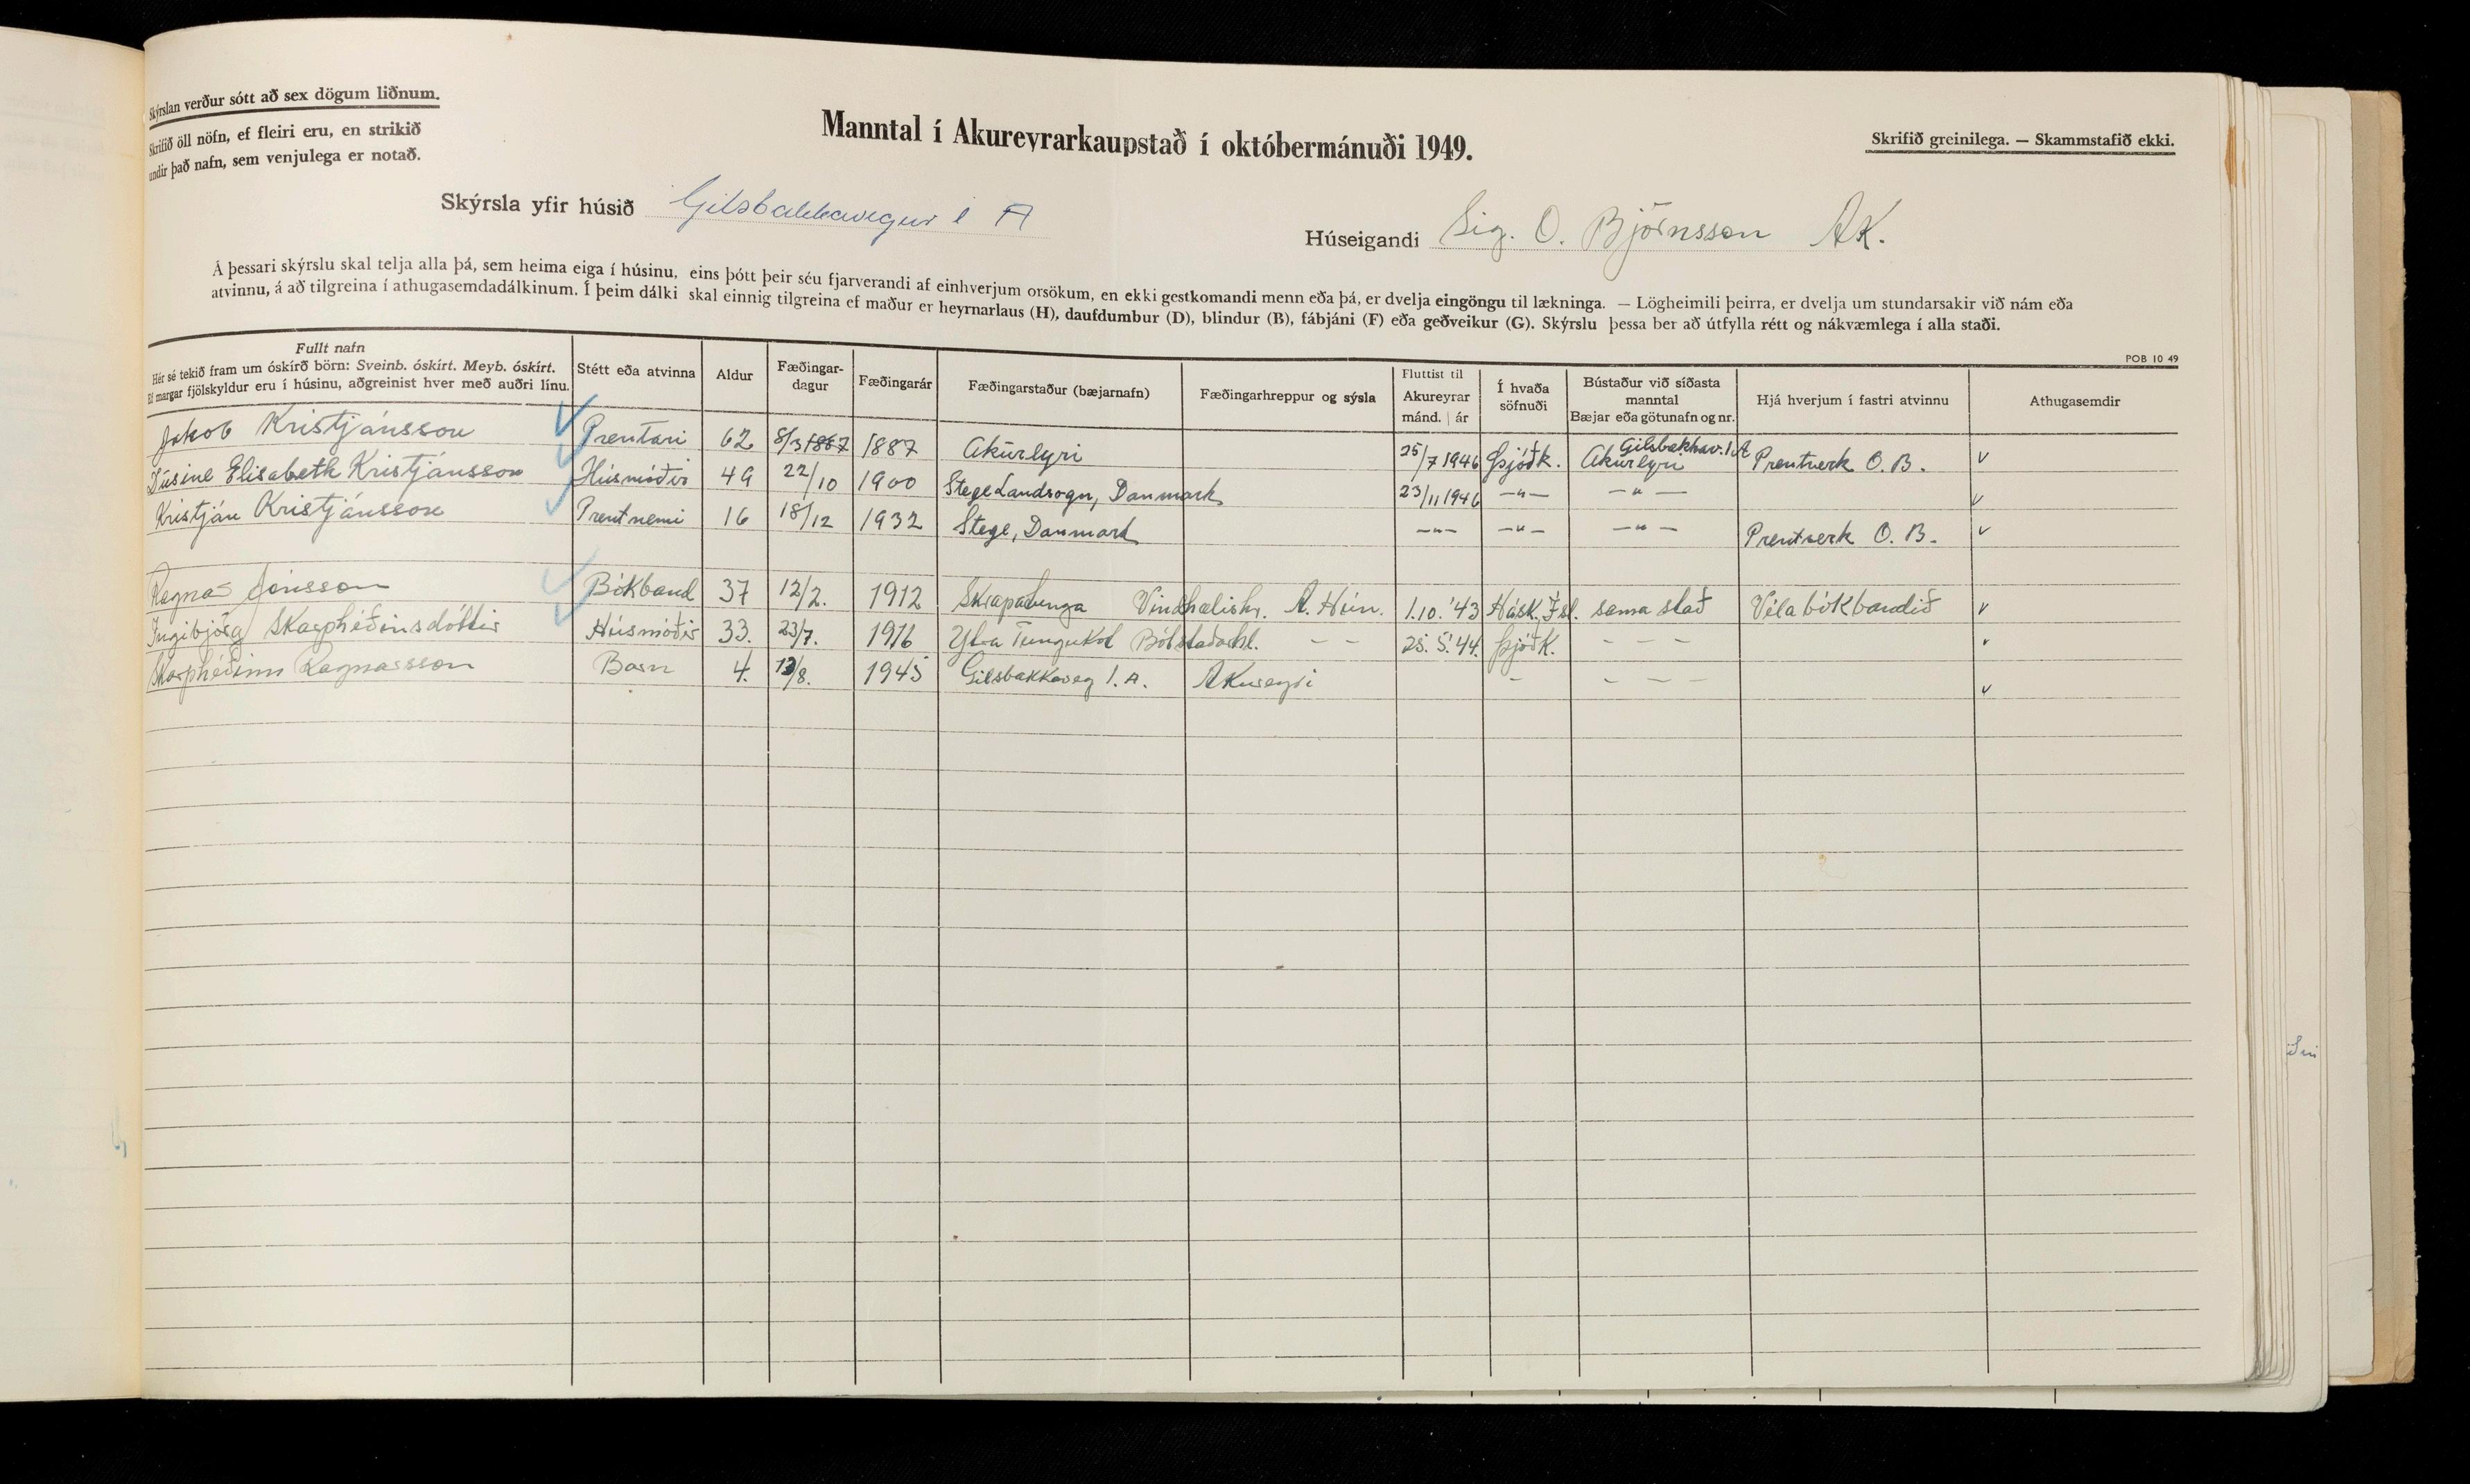 Skýrslan verður sótt að sex dögum liðnum.
Skrifið öll nöfn, ef fleiri eru, en strikið
undir það nafn, sem venjulega er notað.
Manntal í Akureyrarkaupstað í októbermánuði 1949.
Skrifið greinilega. — Skammstafið ekki.
Skýrsla yfir húsið Gilsbakkavegur 1 A
Húseigandi Sig. O. Björnsson AK.
Á þessari skýrslu skal telja alla þá, sem heima eiga í húsinu, eins þótt þeir séu fjarverandi af einhverjum orsökum, en ekki gestkomandi menn eða þá, er dvelja eingöngu til lækninga. — Lögheimili þeirra, er dvelja um stundarsakir við nám eða
atvinnu, á að tilgreina í athugasemdadálkinum. Í þeim dálki skal einnig tilgreina ef maður er heyrnarlaus (H), daufdumbur (D), blindur (B), fábjáni (F) eða geðveikur (G). Skýrslu þessa ber að útfylla rétt og nákvæmlega í alla staði.
POB 10 49
Fullt nafn
Hér sé tekið fram um óskírð börn: Sveinb. óskírt. Meyb. óskírt.
Ef margar fjölskyldur eru í húsinu, aðgreinist hver með auðri línu.
Stétt eða atvinna
Aldur
Fæðingar-
dagur
Fæðingarár
Fæðingarstaður (bæjarnafn)
Fæðingarhreppur og sýsla
Fluttist til
Akureyrar
mánd. | ár
Í hvaða
söfnuði
Bústaður við síðasta
manntal
Bæjar eða götunafn og nr.
Hjá hverjum í fastri atvinnu
Athugasemdir
Jakob Kristjánsson Prentari 62 8/3 1887 1887 Akureyri 25/7 1946 Þjóðk. Gilsbakkav. 1 A Akureyri Prentverk O. B. v
Elisabeth Kristjánsson Húsmóðir 49 22/10 1900 Stege Landsogn, Danmark 23/11 1946 —"— —"— v
Kristján Kristjánsson Prentnemi 16 18/12 1932 Stege, Danmark —"— —"— —"— Prentverk O. B. v
Ragnar Jónsson Bókband 37 12/2. 1912 Skrapatunga Vindhælishr. A. Hún. 1.10.'43 Hásk. Ísl. sama stað Véla bókbandið v
Ingibjörg Skarphéðinsdóttir Húsmóðir 33. 23/7. 1916 Ytra Tungukot Bólstaðarhl. – – 25.5.'44. Þjóðk. – – – v
Skarphéðinn Ragnarsson Barn 4. 13/8. 1945 Gilsbakkaveg 1. A. Akureyri – – – – v